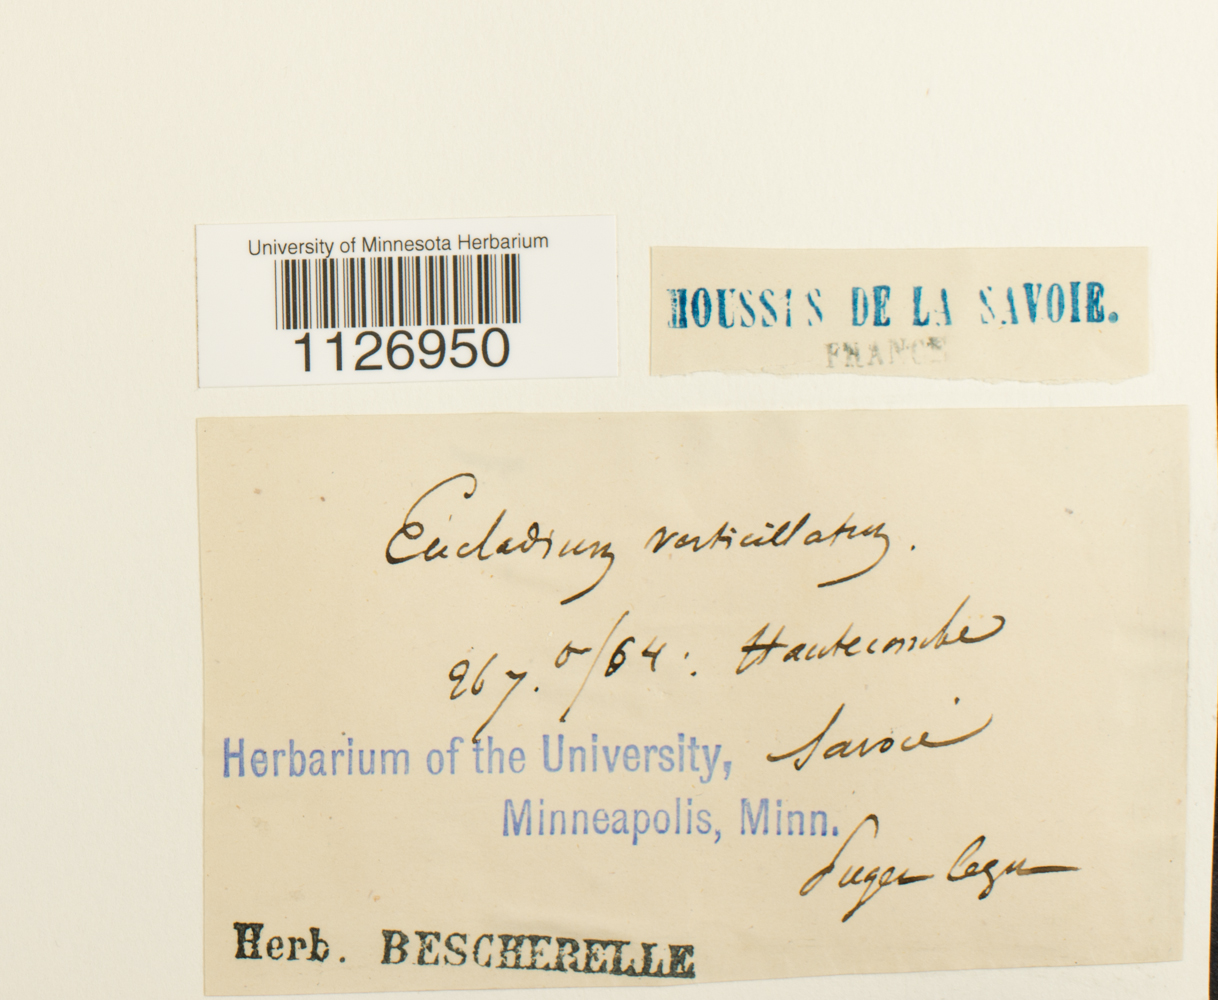 University of Minnesota Herbarium
1126950
MOUSSES DE LA SAVOIE.
FRANCE
Eucladium verticillatum.
Hautecombe
Herbarium of the University,
Savoie
Minneapolis, Minn.
Puget legit
Herb. BESCHERELLE